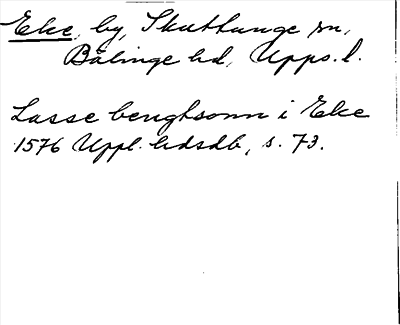 Eke, by, Skuttunge sn,
Bälinge hd, Upps. l.
Lasse bengtsonn i Eke
1576 Uppl. hdsdb, s. 73.